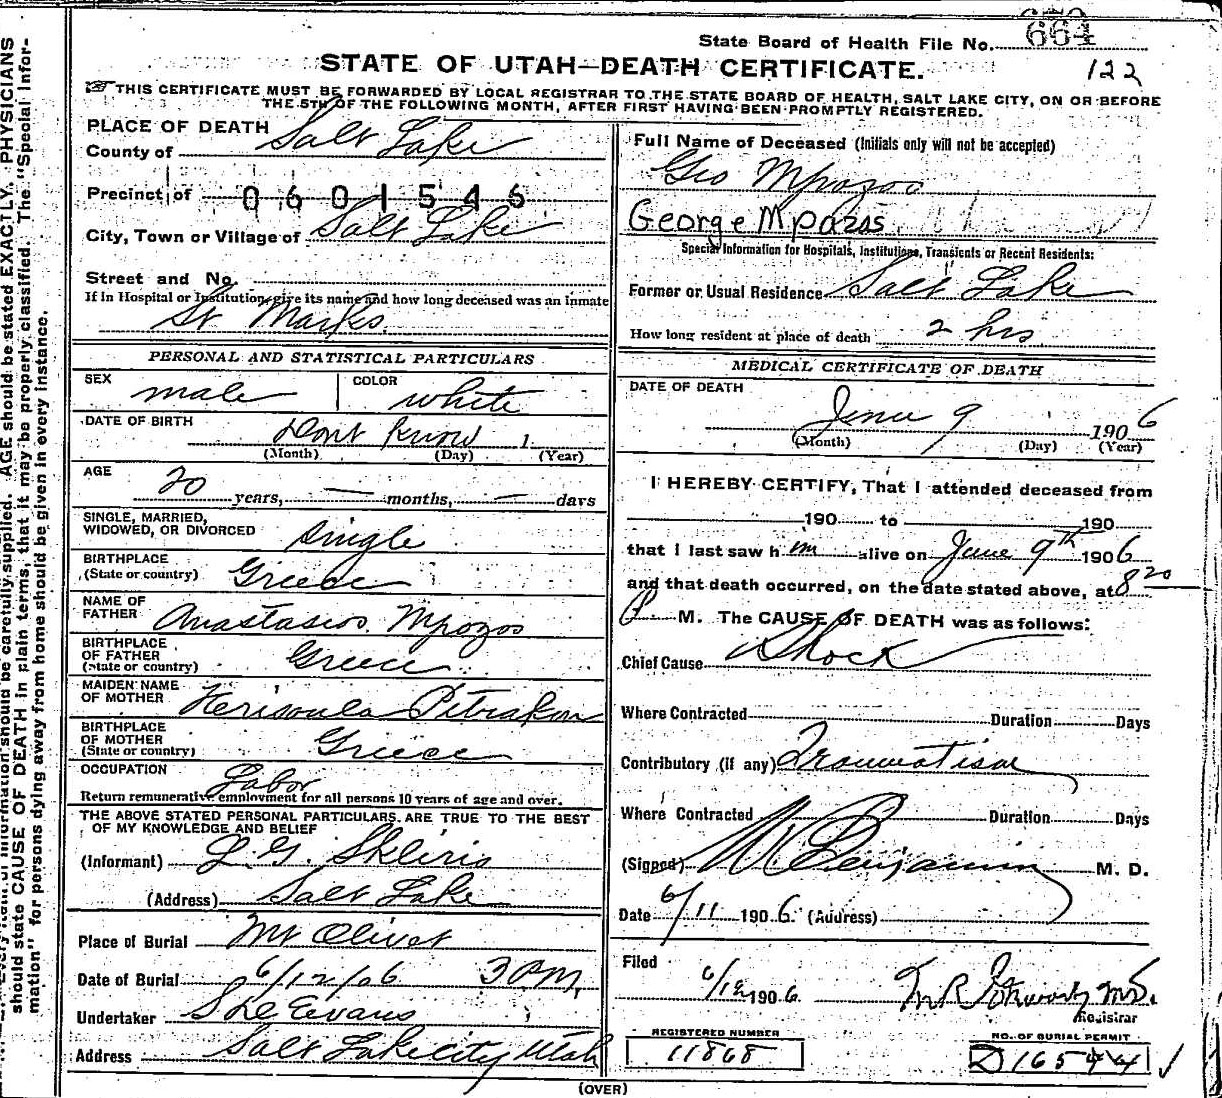 State Board of Health File No. 664
122
STATE OF UTAH—DEATH CERTIFICATE.
THIS CERTIFICATE MUST BE FORWARDED BY LOCAL REGISTRAR TO THE STATE BOARD OF HEALTH, SALT LAKE CITY, ON OR BEFORE
THE 5TH OF THE FOLLOWING MONTH, AFTER FIRST HAVING BEEN PROMPTLY REGISTERED.
PLACE OF DEATH
County of Salt Lake
Precinct of 0601546
City, Town or Village of Salt Lake
Street and No.
If in Hospital or Institution, give its name and how long deceased was an inmate
St Marks
PERSONAL AND STATISTICAL PARTICULARS
SEX male COLOR white
DATE OF BIRTH Dont Know 1
(Month) (Day) (Year)
AGE 20 years, — months, — days
SINGLE, MARRIED,
WIDOWED, OR DIVORCED single
BIRTHPLACE
(State or country) Greece
NAME OF
FATHER Anastasios Mpozos
BIRTHPLACE
OF FATHER
(State or country) Greece
MAIDEN NAME
OF MOTHER
BIRTHPLACE
OF MOTHER
(State or country) Greece
OCCUPATION Labor
Return remunerative employment for all persons 10 years of age and over.
THE ABOVE STATED PERSONAL PARTICULARS ARE TRUE TO THE BEST
OF MY KNOWLEDGE AND BELIEF
(Informant) L G. Skliris
(Address) Salt Lake
Place of Burial Mt Olivet
Date of Burial 6/12/06 3 P.M.
Undertaker Evans
Address Salt Lake City Utah
Full Name of Deceased (Initials only will not be accepted)
Geo Mpozos
George Mpozos
Special Information for Hospitals, Institutions, Transients or Recent Residents:
Former or Usual Residence Salt Lake
How long resident at place of death 2 hrs
MEDICAL CERTIFICATE OF DEATH
DATE OF DEATH
June 9 1906
(Month) (Day) (Year)
I HEREBY CERTIFY, That I attended deceased from
190 to 190
that I last saw him alive on June 9th 1906
and that death occurred, on the date stated above, at 8 20
P. M. The CAUSE OF DEATH was as follows:
Chief Cause Shock
Where Contracted Duration Days
Contributory (if any) Traumatism
Where Contracted Duration Days
(Signed) Benjamin M. D.
Date 6/11 1906. (Address)
Filed
6/12 1906. M.D.
Registrar
REGISTERED NUMBER
11868
NO. OF BURIAL PERMIT
D 16544
(OVER)
AGE should be stated EXACTLY. PHYSICIANS
should state CAUSE OF DEATH in plain terms, that it may be properly classified. The "Special Infor-
mation" for persons dying away from home should be given in every instance.